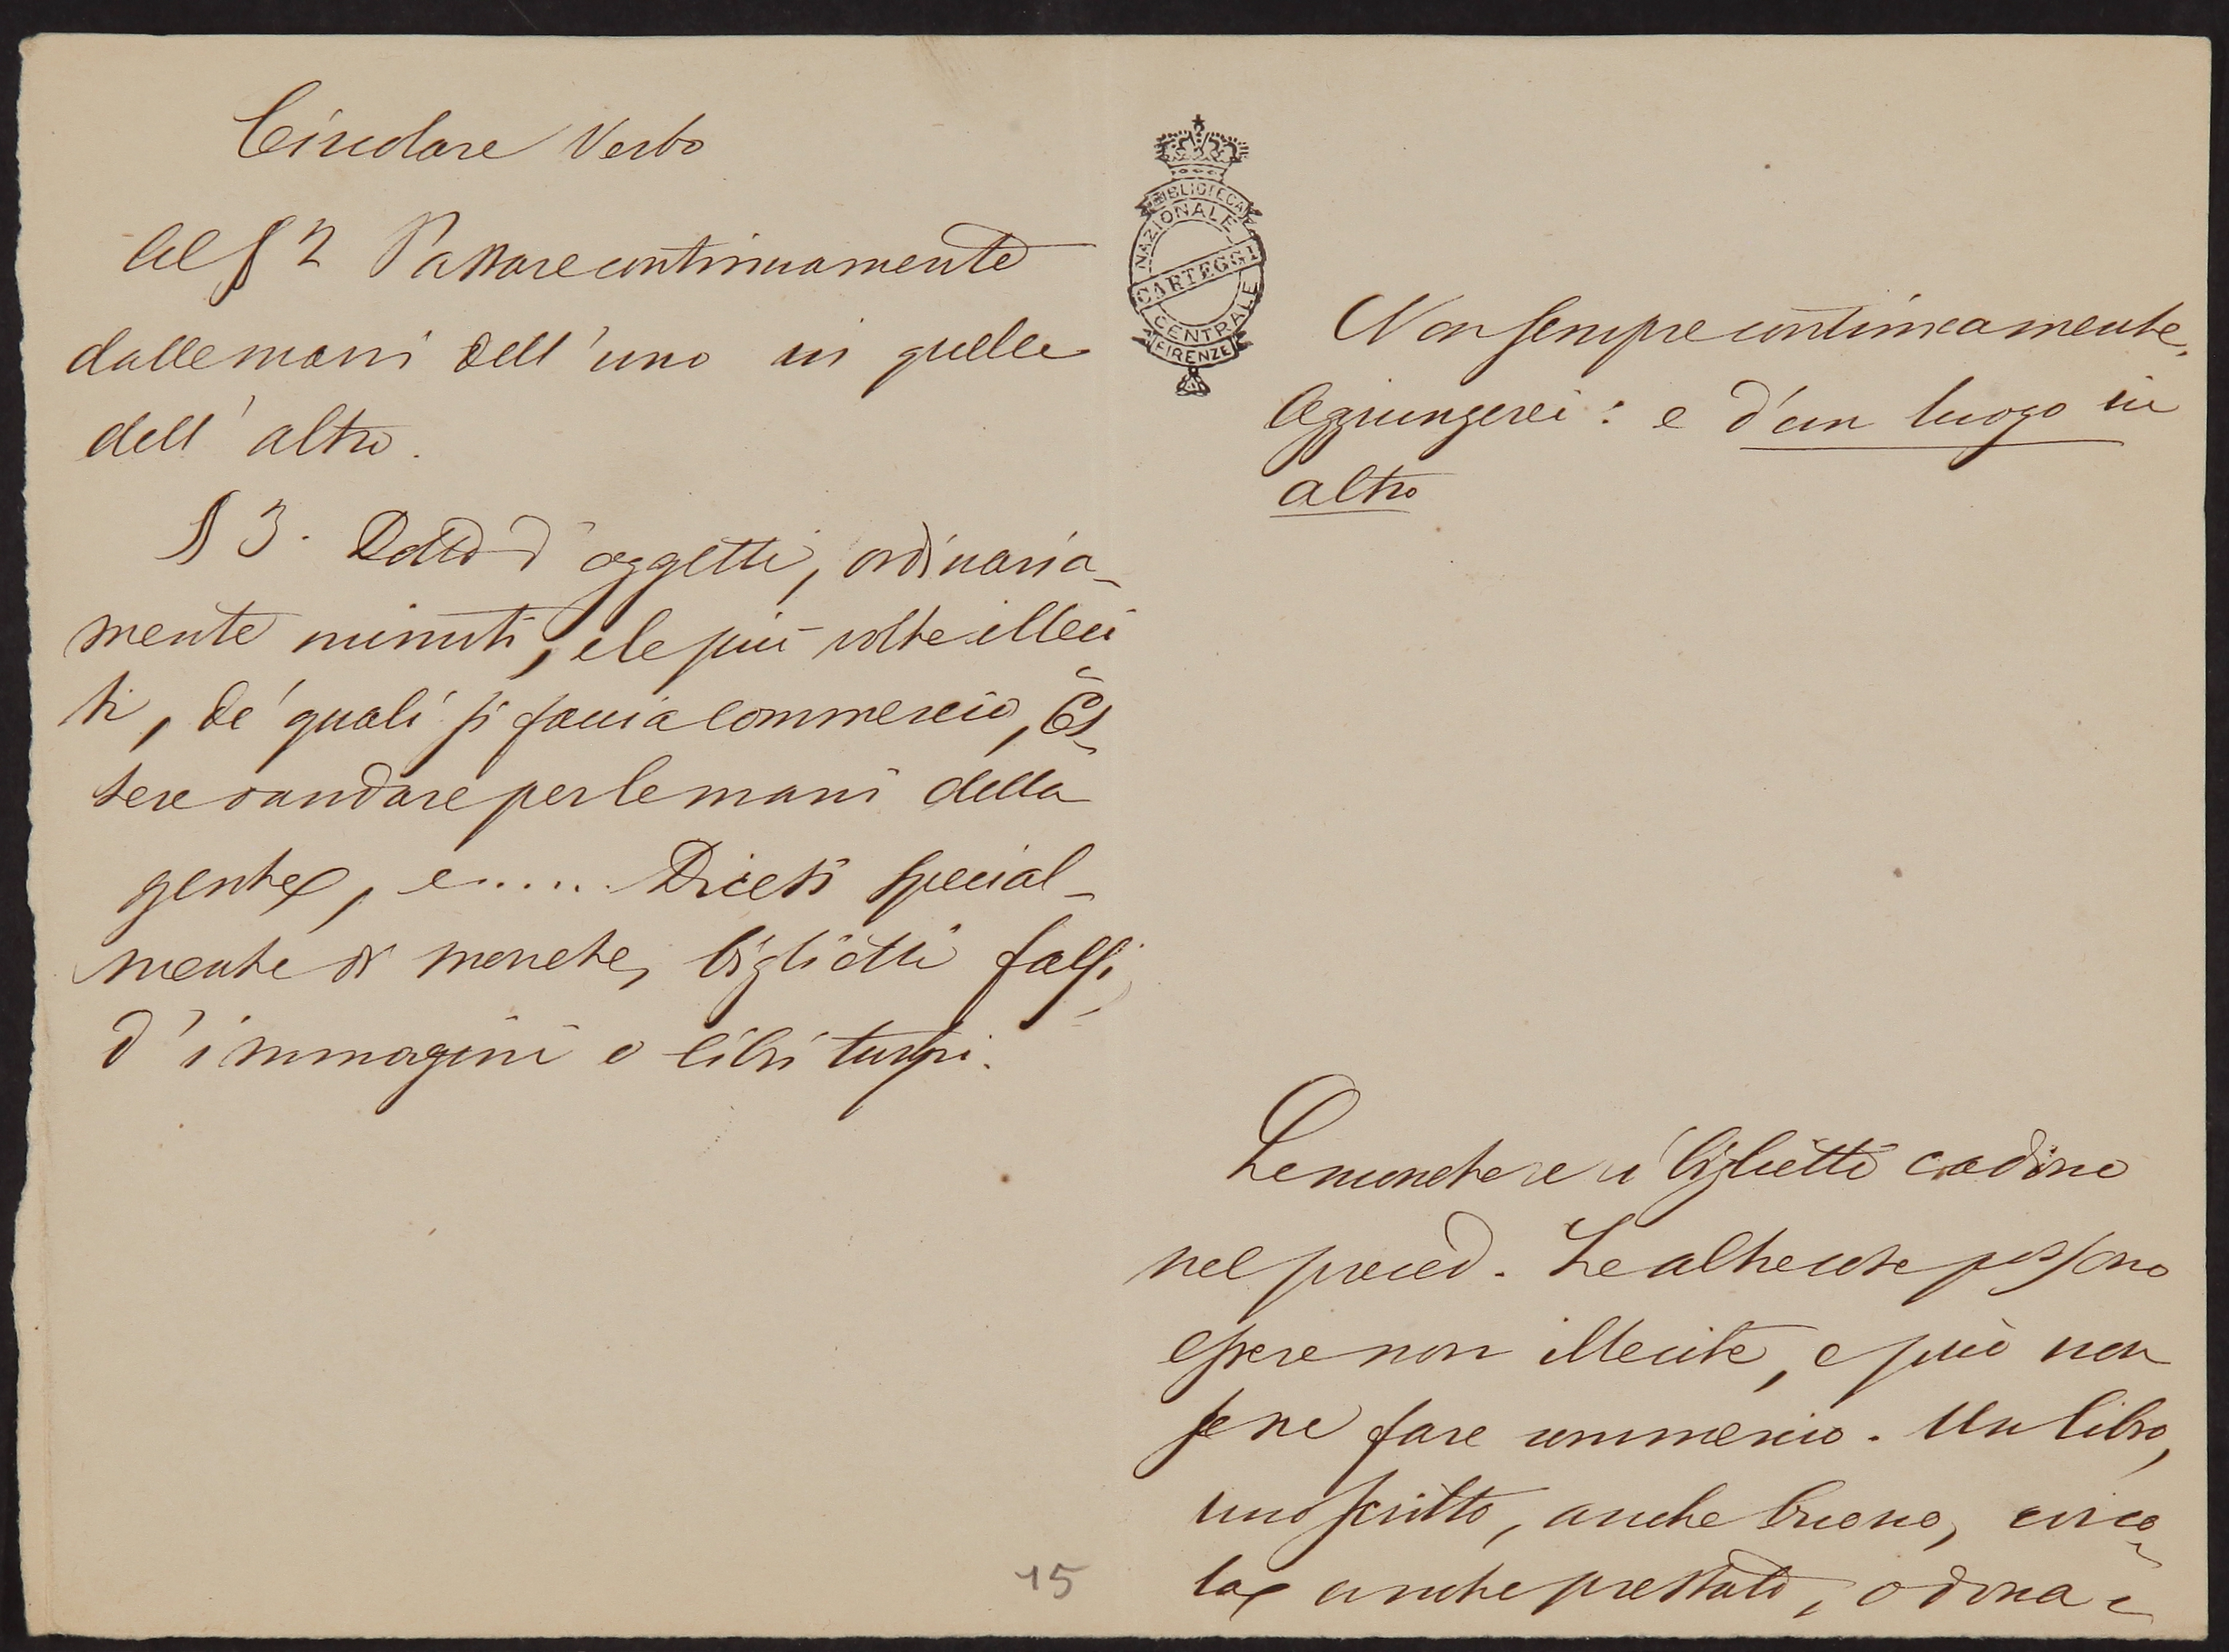 Circolare Verbo
Al § 2 Passare continuamente
dalle mani dell'uno in quelle
dell'altro.
§ 3. Detto d'oggetti, ordinaria-
mente minuti, e le più volte illeci
ti, de' quali si faccia commercio, Es-
sere o andare per le mani della
gente, e..... Dicesi special-
mente di monete, biglietti falsi,
d'immagini o libri turpi.
BIBLIOTECA
NAZIONALE
CARTEGGI
CENTRALE
FIRENZE
Non sempre continuamente.
Aggiungerei: e d'un luogo in
altro
Le monete e i biglietti cadono
nel preced. Le altre cose possono
essere non illecite, e può non
se ne fare commercio. Un libro,
uno scritto, anche buono, circo-
la anche prestato, o dona-
15